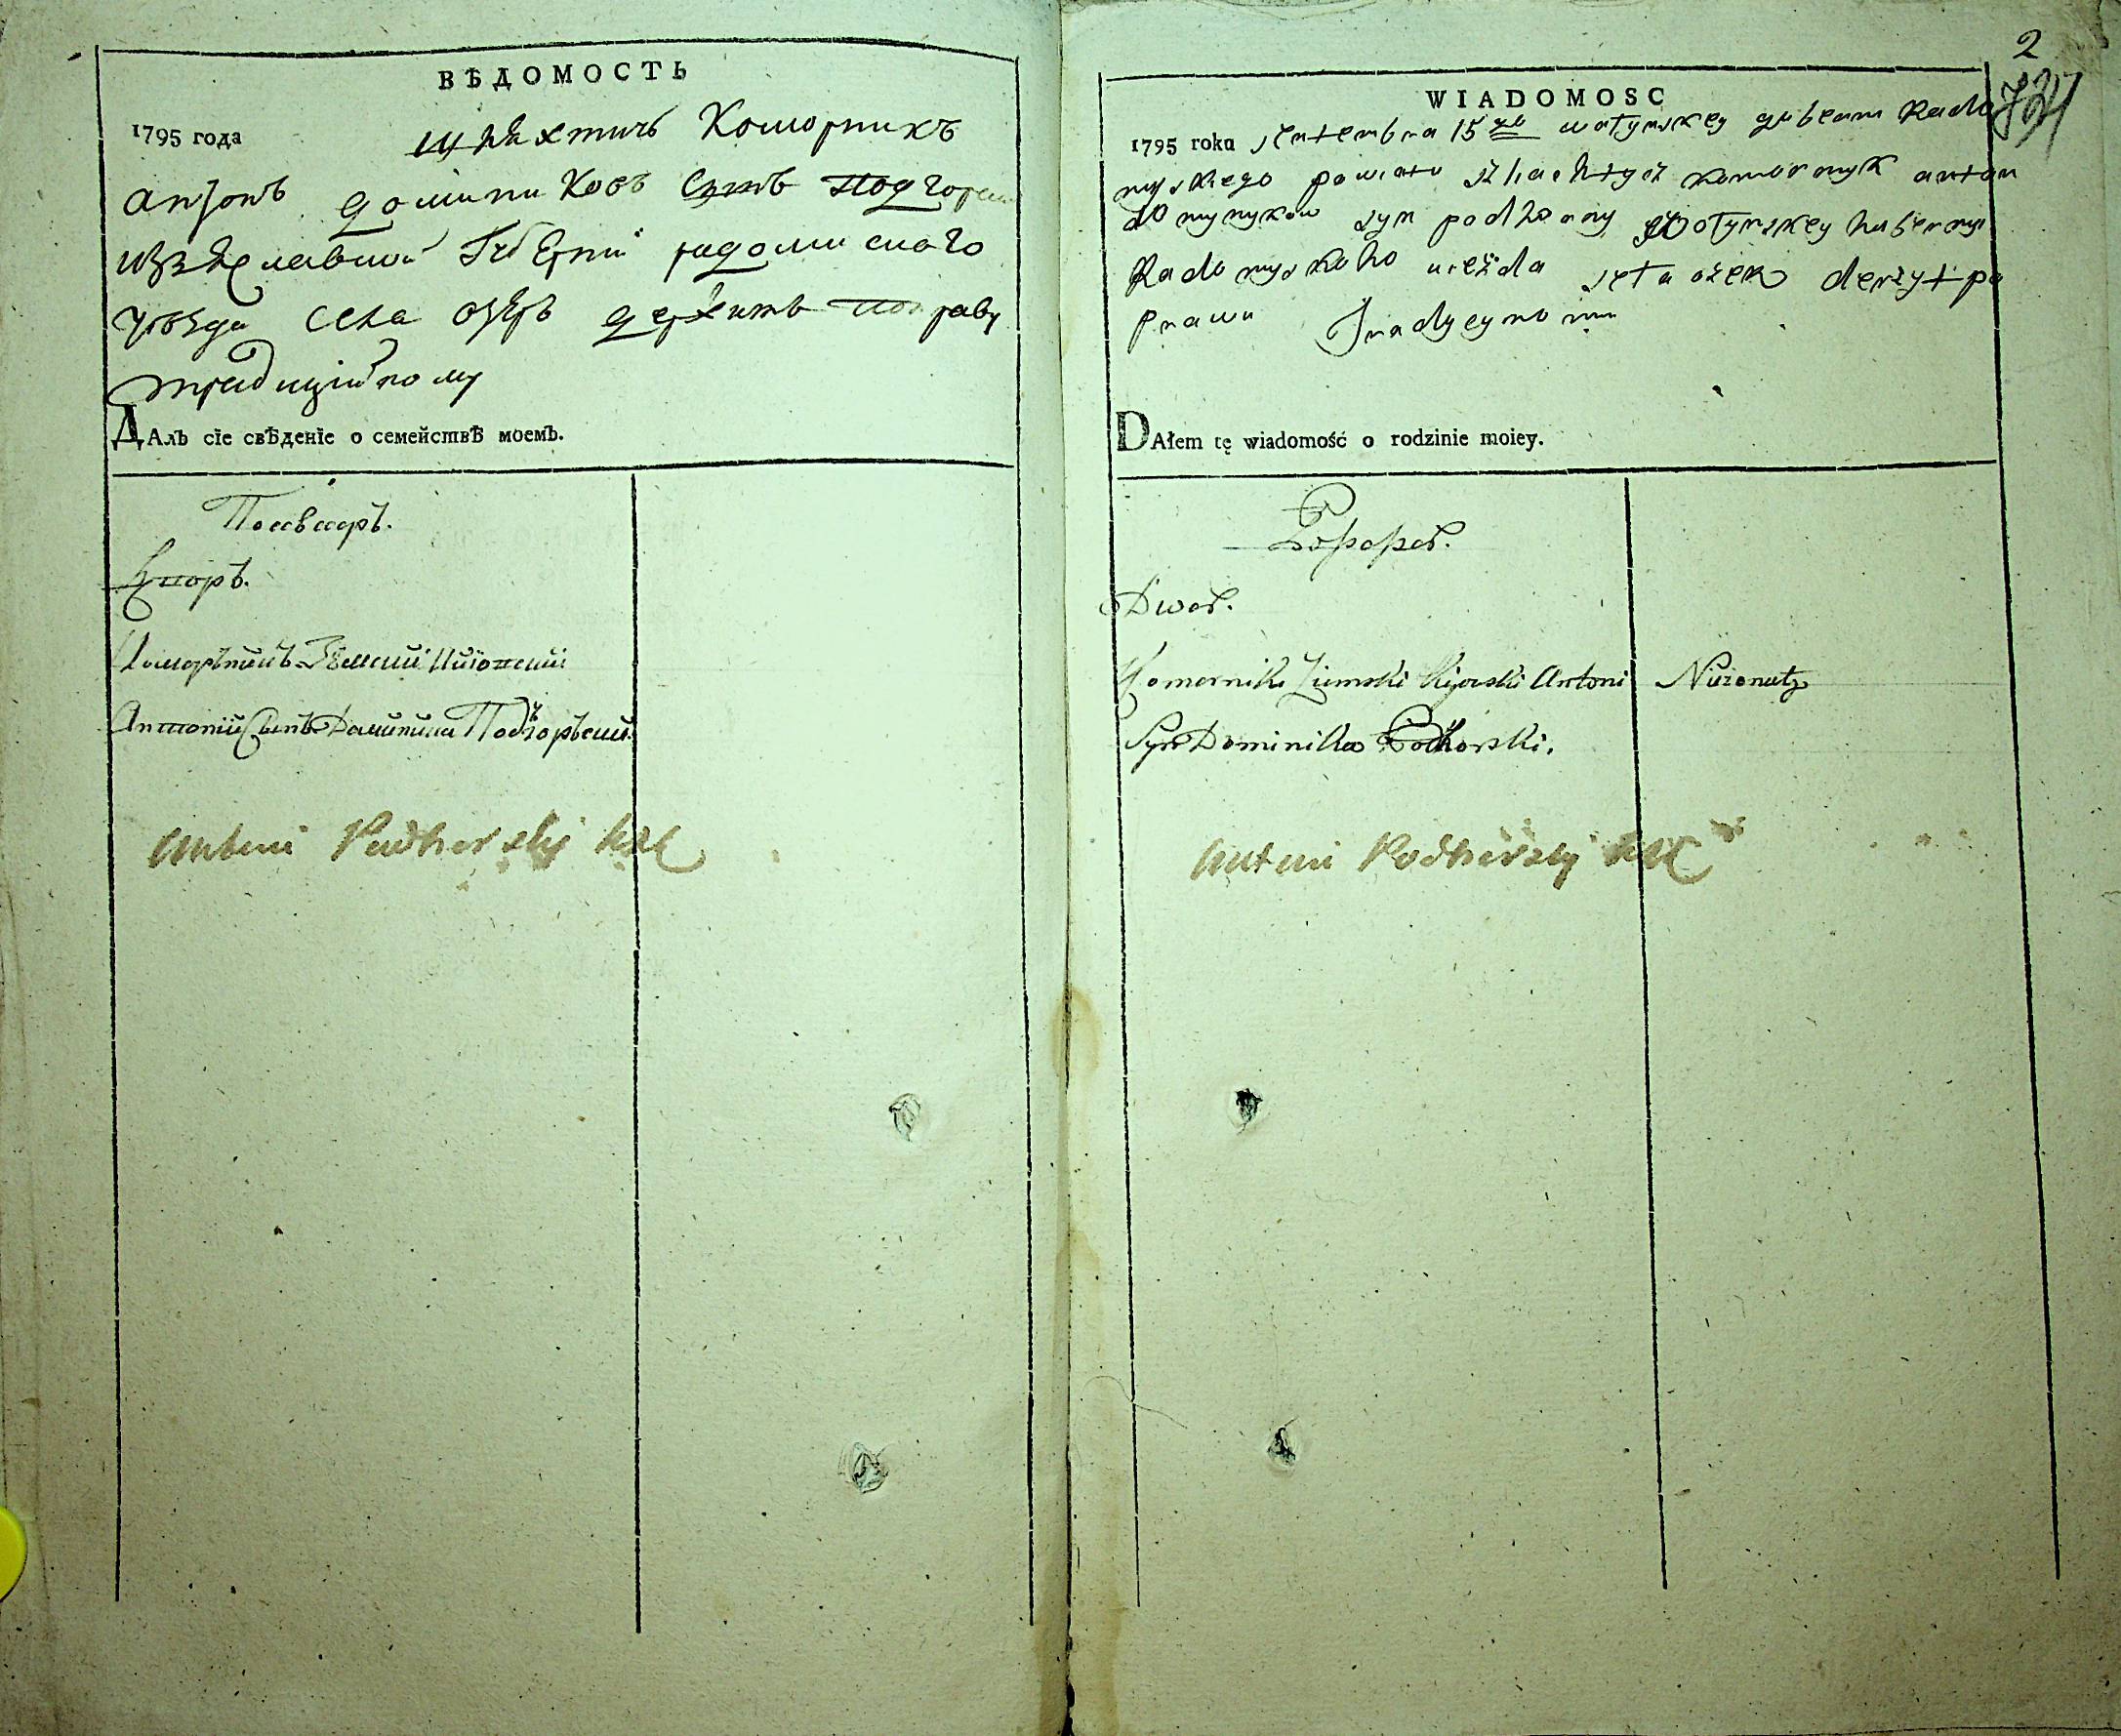 ВѢДОМОСТЬ
1795 года шляхтичь Коморникъ
антонъ доминиковъ Сынъ подгорски
Изяславской Губерніи радомиского
уѣзда села озеръ держитъ по праву
традиційному
ДАлъ сїе свѣденїе о семействѣ моемъ.
Поссесоръ.
Дворъ.
Коморникъ Земский Киіовский
Антоній Сынъ Доминика Подгорьский.
Antoni Podhorskij KZK
2
WIADOMOSC
1795 roku septembra 15 wołynskey gubernii Rado
myskiego powiatu szliachtycz komornyk anton
domynykow syn podhorny wołynskey hubernyi
Radomyskoho uiezda seła ozer derżyt po
prawu tradycynomu
DAłem tę wiadomość o rodzinie moiey.
Possessor.
Dwor.
Komornik Ziemski Kijowski Antoni Nieżonaty
Syn Dominika Podhorski.
Antoni Podhorskij KZK